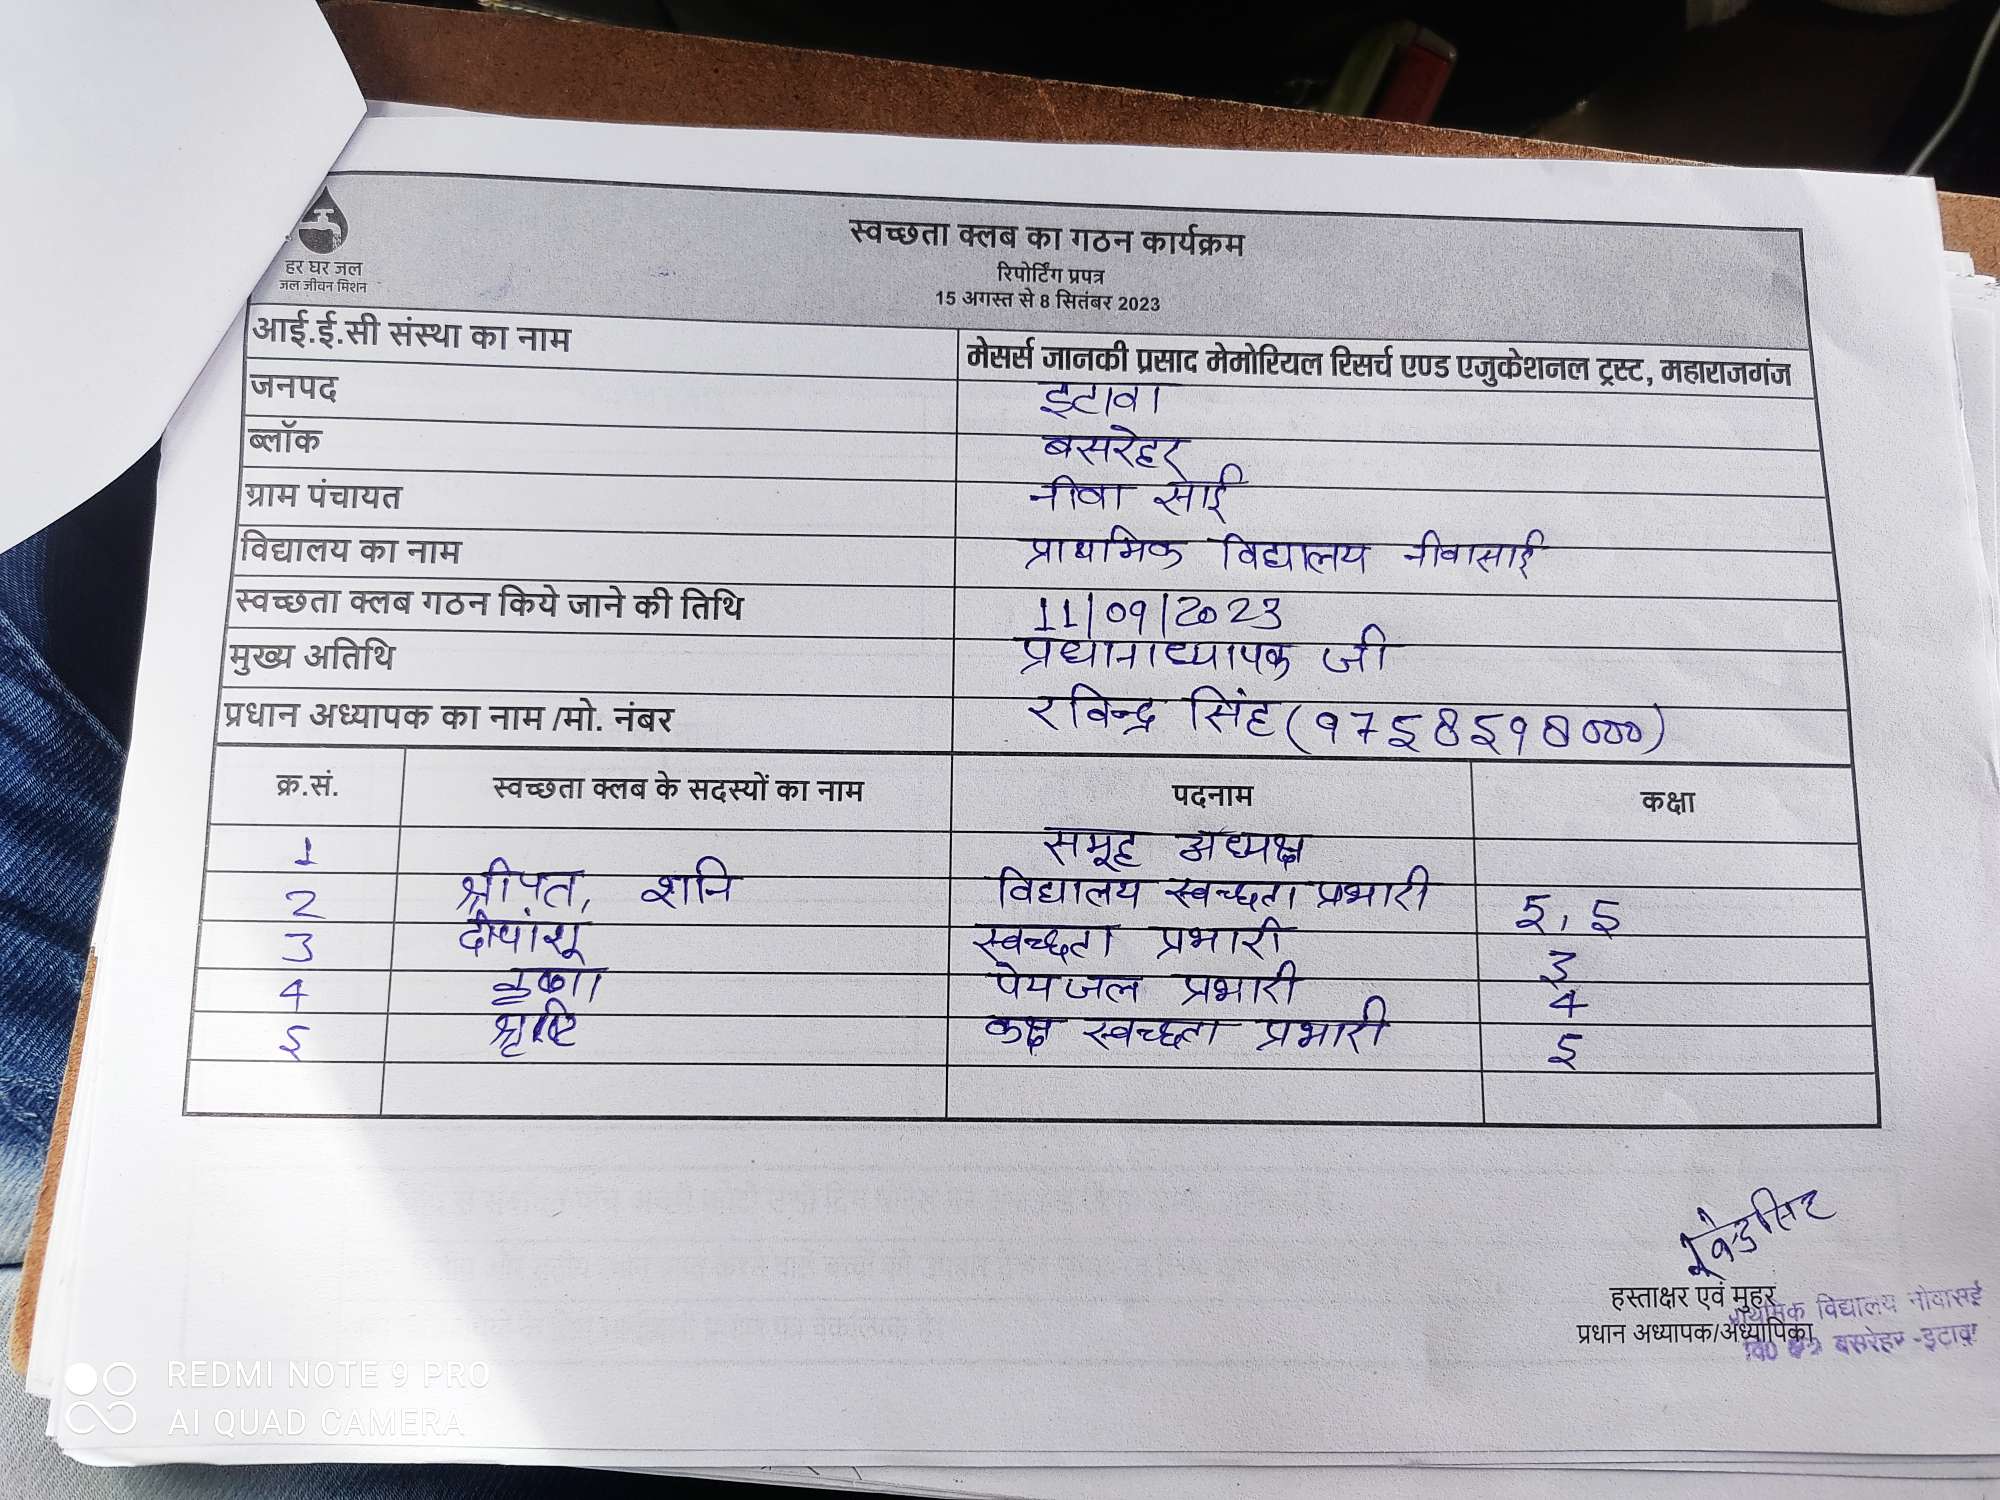 हर घर जल
जल जीवन मिशन
स्वच्छता क्लब का गठन कार्यक्रम
रिपोर्टिंग प्रपत्र
15 अगस्त से 8 सितंबर 2023
आई.ई.सी संस्था का नाम मेसर्स जानकी प्रसाद मेमोरियल रिसर्च एण्ड एजुकेशनल ट्रस्ट, महाराजगंज
जनपद इटावा
ब्लॉक बसरेहर
ग्राम पंचायत नीवा साई
विद्यालय का नाम प्राथमिक विद्यालय नीवासाई
स्वच्छता क्लब गठन किये जाने की तिथि 11/09/2023
मुख्य अतिथि प्रधानाध्यापक जी
प्रधान अध्यापक का नाम /मो. नंबर रविन्द्र सिंह (9758598000)
क्र.सं. स्वच्छता क्लब के सदस्यों का नाम पदनाम कक्षा
1 समूह अध्यक्ष
2 श्रीपत, शनि विद्यालय स्वच्छता प्रभारी 5, 5
3 दीपांशू स्वच्छता प्रभारी 3
4 कृष्णा पेयजल प्रभारी 4
5 श्रृष्टि कक्ष स्वच्छता प्रभारी 5
हस्ताक्षर एवं मुहर
प्रधान अध्यापक/अध्यापिका
विद्यालय नीवासई
बसरेहर -इटावा
REDMI NOTE 9 PRO
AI QUAD CAMERA